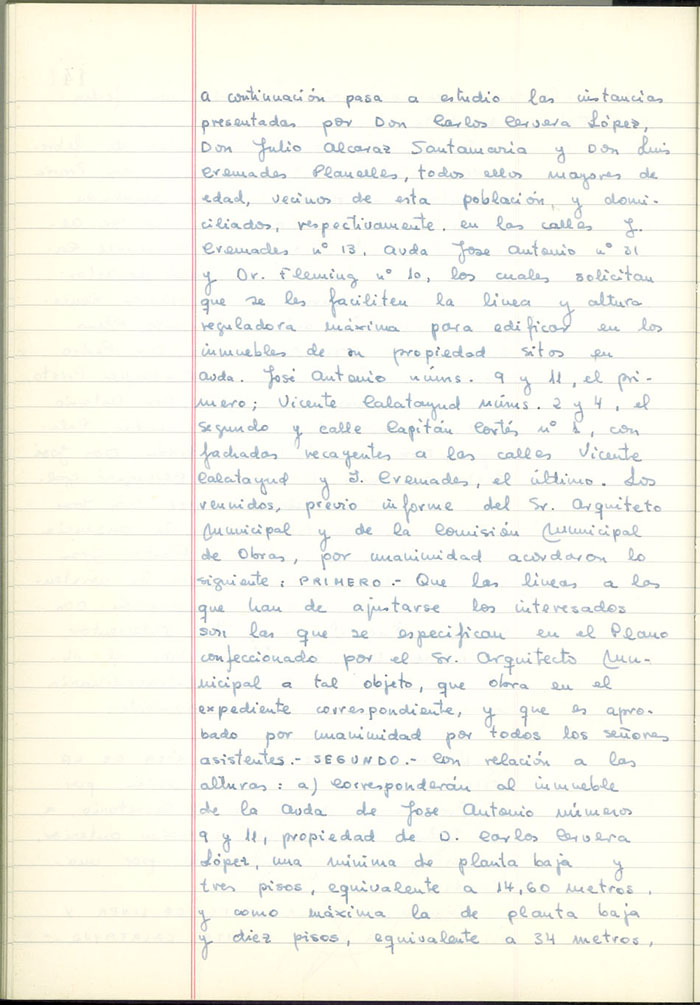 a continuación pasa a estudio las instancias
presentadas por Don Carlos Cervera López,
Don Julio Alcaraz Santamaria y Don Luis
Cremades Planelles, todos ellos mayores de
edad, vecinos de esta población, y domi-
ciliados, respectivamente. en las calles J.
Cremades nº 13, Avda Jose Antonio nº 31
y Dr. Fleming nº 10, los cuales solicitan
que se les faciliten la linea y altura
reguladora máxima para edificar en los
inmuebles de su propiedad sitos en
avda. José Antonio núms. 9 y 11, el pri-
mero; Vicente Calatayud núms. 2 y 4, el
segundo y calle Capitán Cortés nº 1, con
fachadas recayentes a las calles Vicente
Calatayud y J. Cremades, el último. Los
reunidos, previo informe del Sr. Arquiteto
Municipal y de la Comisión Municipal
de Obras, por unanimidad acordaron lo
siguiente: PRIMERO.- Que las lineas a las
que han de ajustarse los interesados
son las que se especifican en el Plano
confeccionado por el Sr. Arquitecto Mu-
nicipal a tal objeto, que obra en el
expediente correspondiente, y que es apro-
bado por unanimidad por todos los señores
asistentes.- SEGUNDO.- Con relación a las
alturas: a) Corresponderán al inmueble
de la Avda de Jose Antonio números
9 y 11, propiedad de D. Carlos Cervera
López, una mínima de planta baja y
tres pisos, equivalente a 14,60 metros,
y como máxima la de planta baja
y diez pisos, equivalente a 34 metros.